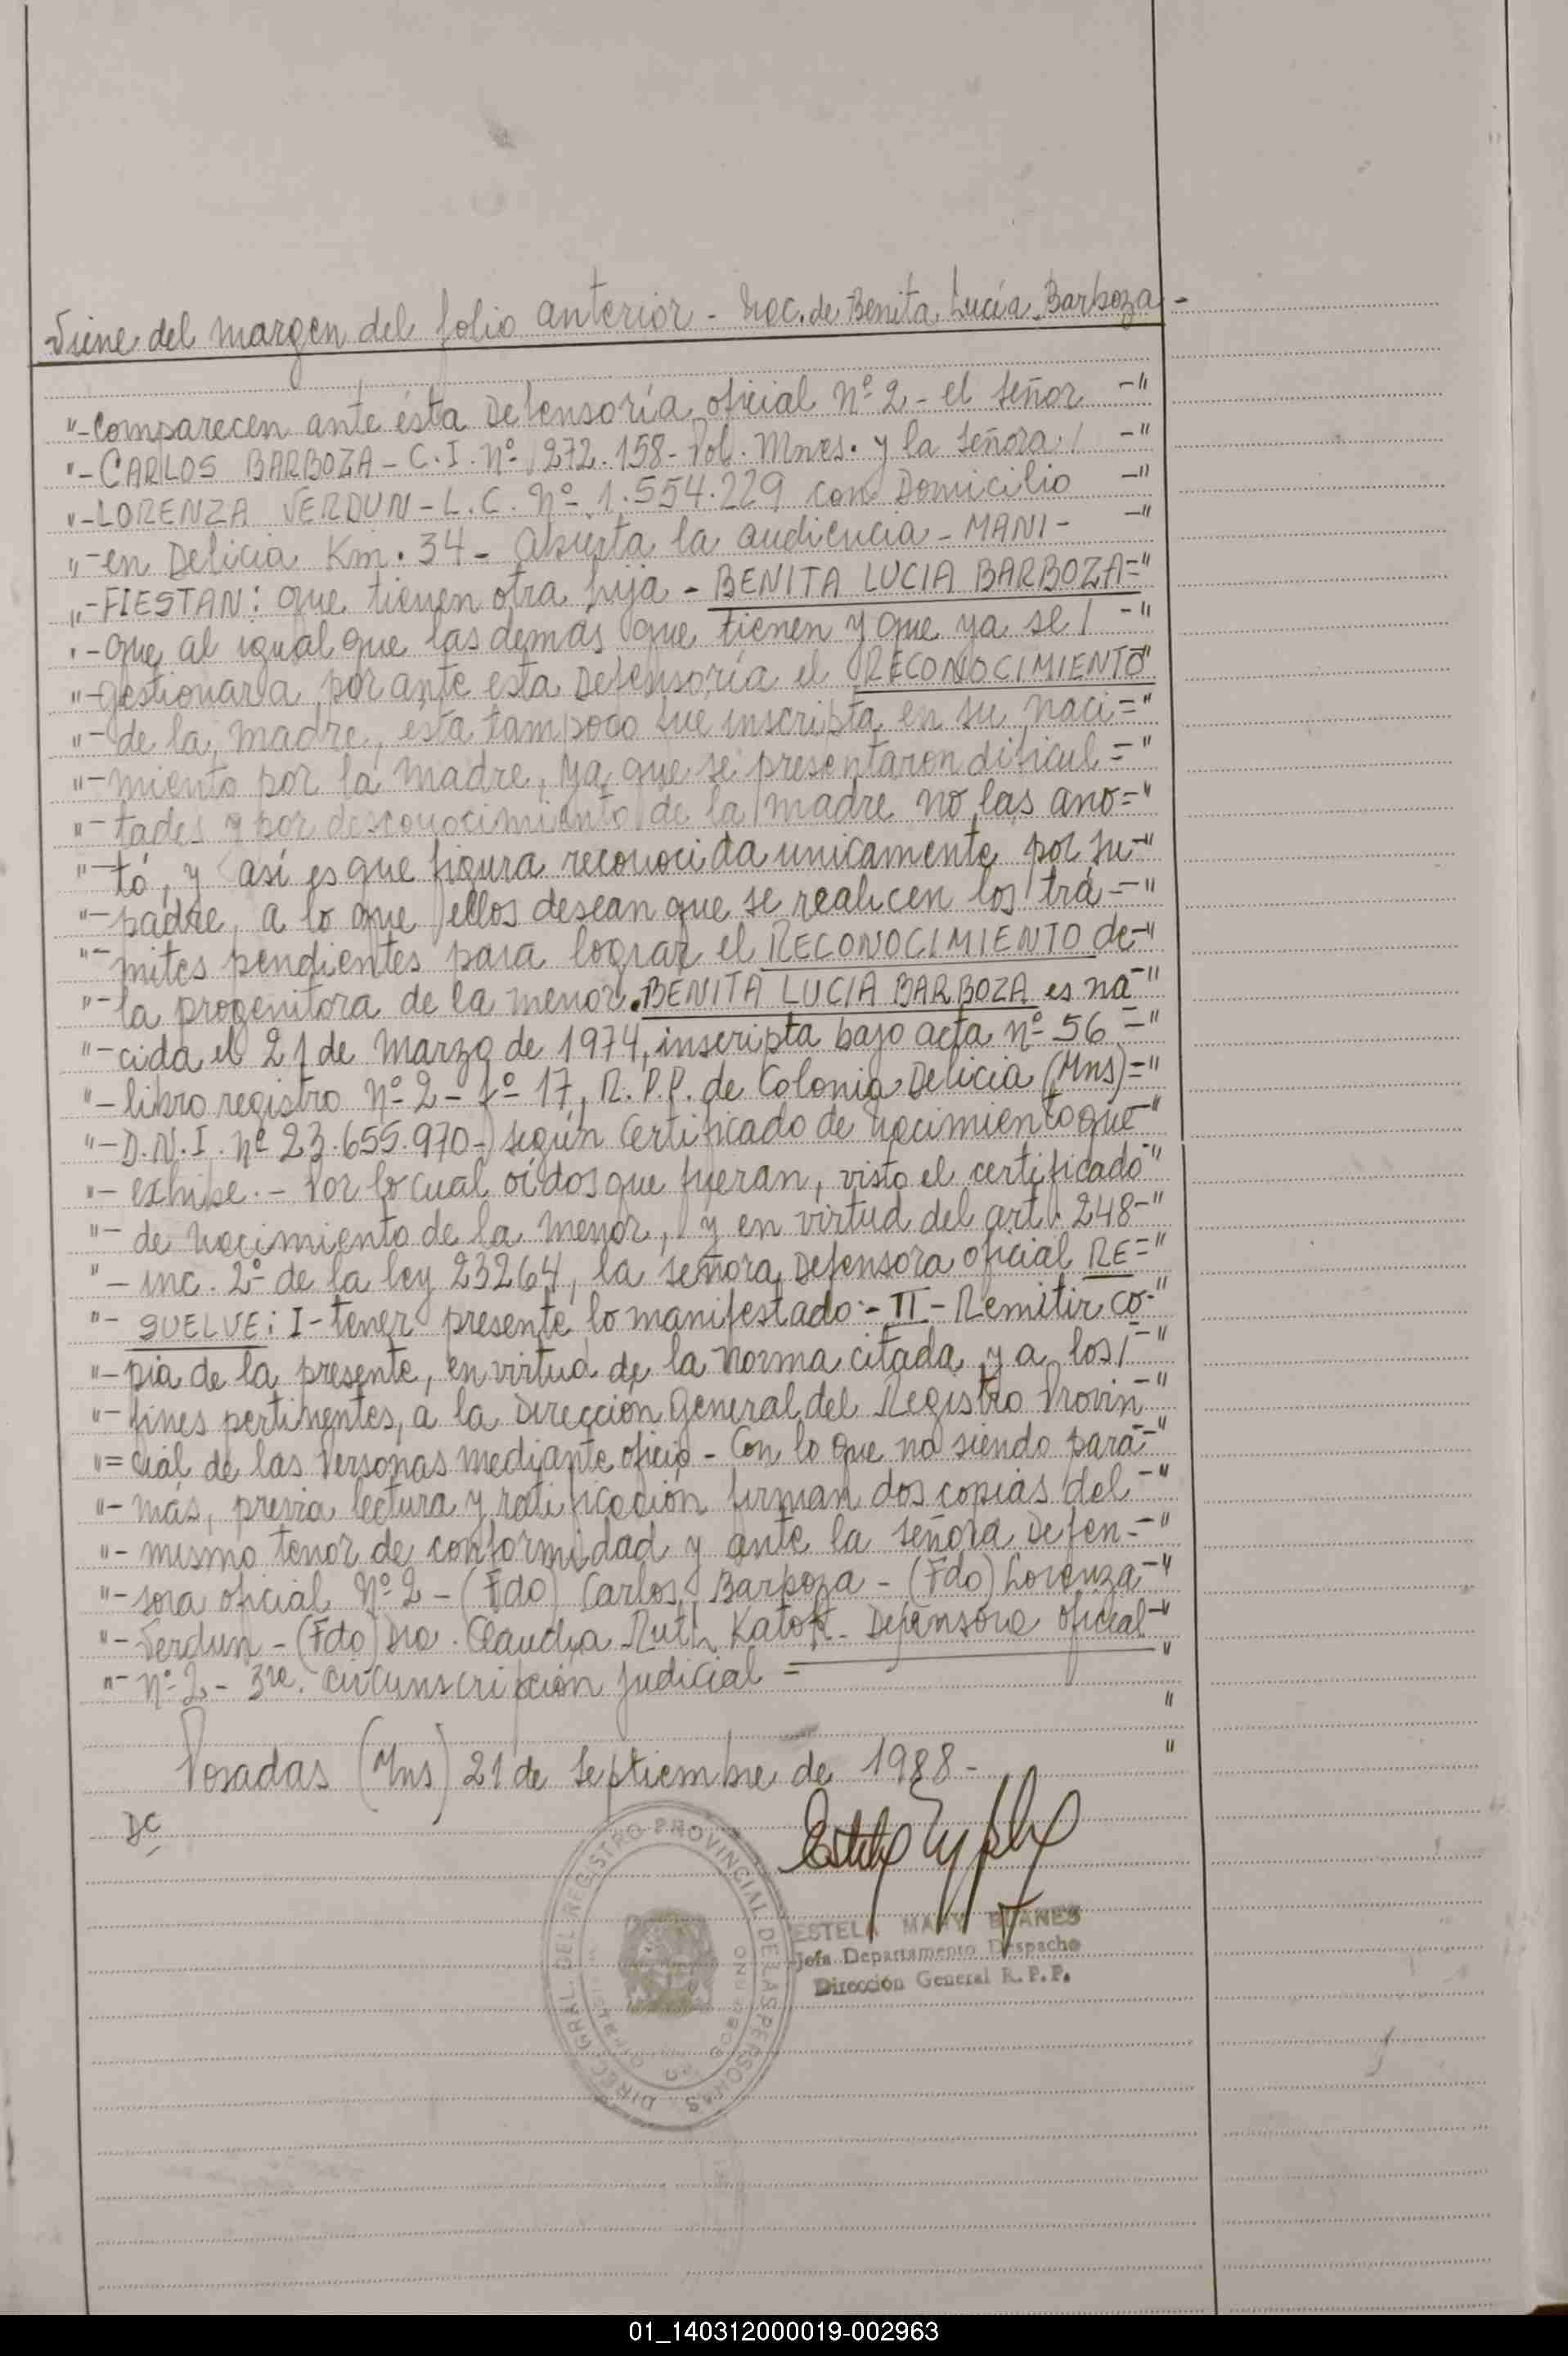 Viene del margen del folio anterior - Rec. de Benita Lucía Barboza -
"- Comparecen ante ésta Defensoría oficial Nº 2 - el señor -"
"- CARLOS BARBOZA - C.I. Nº 272.158 - Pol. Mnes. y la señora / -"
"- LORENZA VERDUN - L.C. Nº 1.554.229 con Domicilio -"
"- en Delicia Km. 34 - abierta la audiencia - MANI - -"
"- FIESTAN: que tienen otra hija - BENITA LUCIA BARBOZA ="
"- que al igual que las demás que tienen y que ya se / -"
"- gestionara por ante esta Defensoría el RECONOCIMIENTO -"
"- de la madre, ésta tampoco fue inscripta en su naci = "
"- miento por la madre, ya que se presentaron dificul = "
"- tades y por desconocimiento de la madre no las ano = "
"- tó, y así es que figura reconocida unicamente por su -"
"- padre, a lo que ellos desean que se realicen los trá - "
"- mites pendientes para lograr el RECONOCIMIENTO de -"
"- la progenitora de la menor. BENITA LUCIA BARBOZA es na -"
"- cida el 21 de Marzo de 1974, inscripta bajo acta nº 56 - "
"- libro registro Nº 2 - fº 17, R.P.P. de Colonia Delicia (Mns) = "
"- D.N.I. Nº 23.655.970 - según Certificado de nacimiento que -"
"- exhibe. - Por lo cual oídos que fueran, visto el certificado -"
"- de nacimiento de la menor, y en virtud del art. 248 -"
"- inc. 2º de la ley 23264, la señora Defensora oficial RE = "
"- SUELVE: I - tener presente lo manifestado: - II - Remitir co -"
"- pia de la presente, en virtud de la norma citada y a los / -"
"- fines pertinentes, a la Dirección General del Registro Provin -"
"= cial de las Personas mediante oficio - Con lo que no siendo para -"
"- más, previa lectura y ratificación firman dos copias del -"
"- mismo tenor de conformidad y ante la señora Defen - "
"- sora oficial Nº 2 - (Fdo) Carlos Barboza - (Fdo) Lorenza -"
"- Verdun - (Fdo) Dra. Claudia Ruth Katok - Defensora oficial -"
"- Nº 2 - 3ra. circunscripción judicial = "
"
Posadas (Mns) 21 de Septiembre de 1988 - "
DC
DIREC. GRAL. DEL REGISTRO PROVINCIAL DE LAS PERSONAS
ESTELA MARY BLANES
Jefa Departamento Despacho
Dirección General R.P.P.
01_140312000019-002963